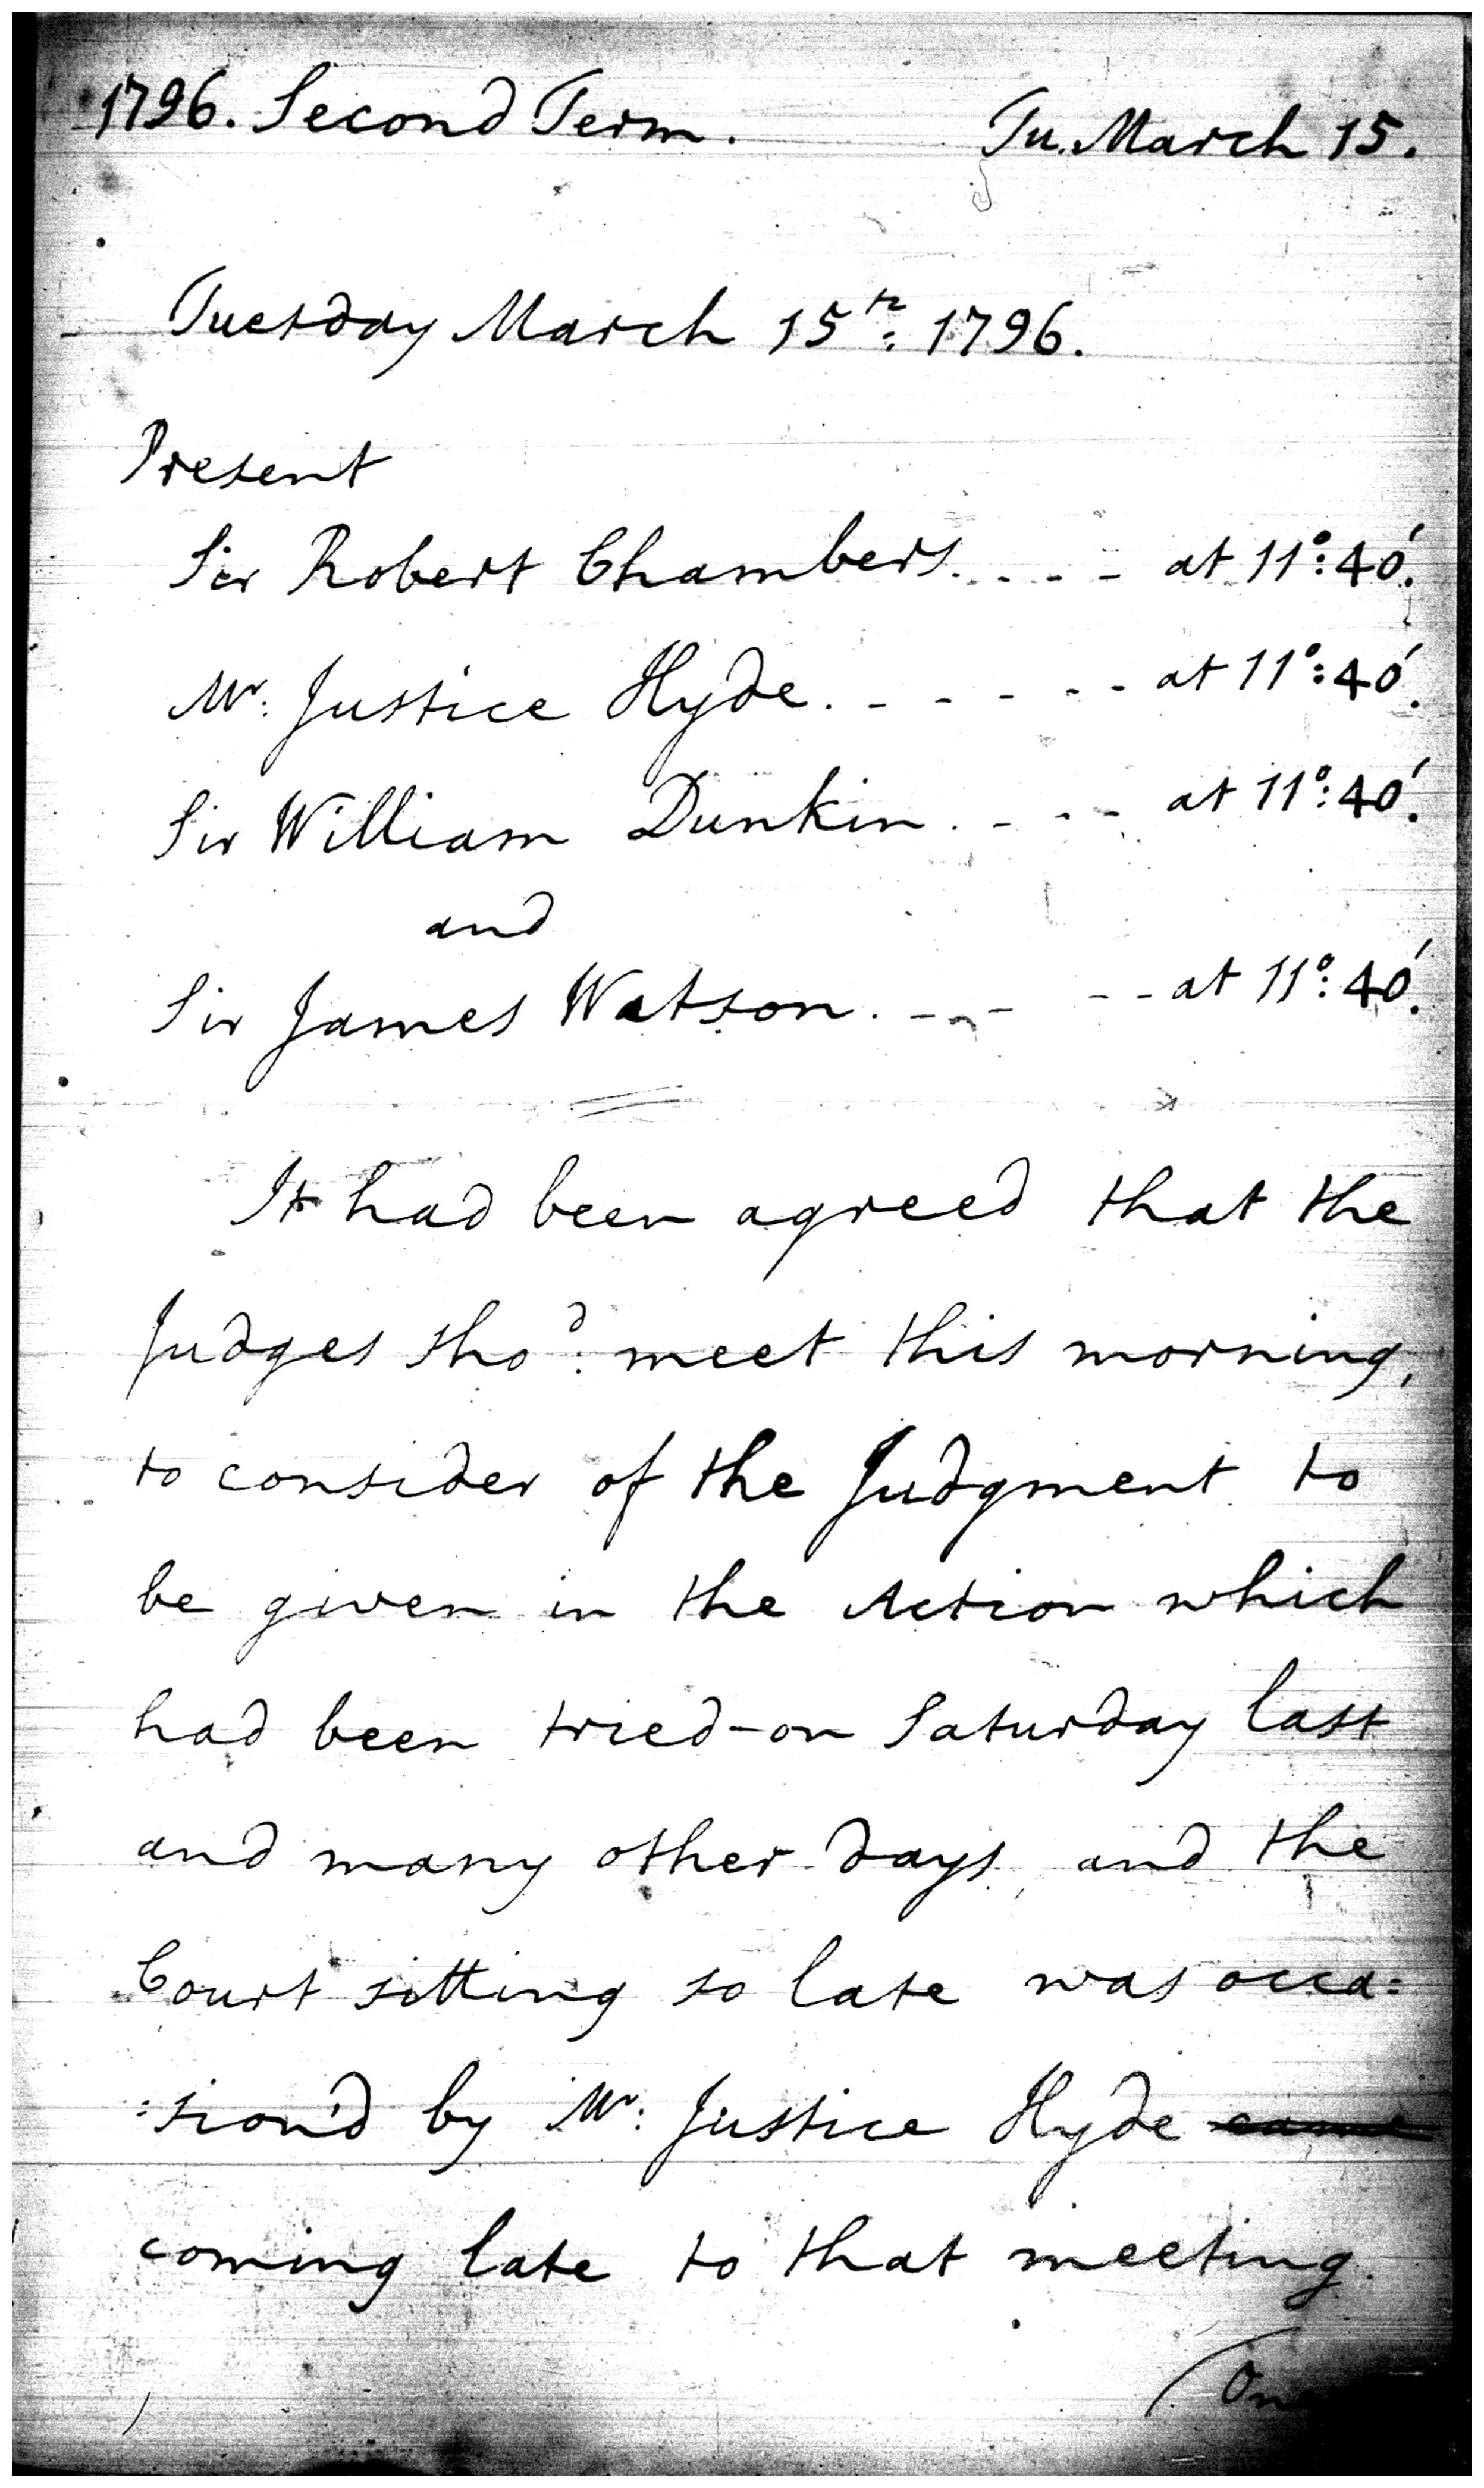 1796. Second Term. Tu. March 15.
Tuesday March 15th: 1796.
Present
Sir Robert Chambers. . . - - at 11°: 40'.
Mr: Justice Hyde. - - - - - at 11°: 40'.
Sir William Dunkin. - - - at 11°: 40'.
and
Sir James Watson. - - - - - at 11°: 40'.
It had been agreed that the
Judges shod: meet this morning,
to consider of the Judgment to
be given in the Action which
had been tried-on Saturday last
and many other days, and the
Court sitting so late was occa=
=sion'd by Mr: Justice Hyde came
coming late to that meeting.